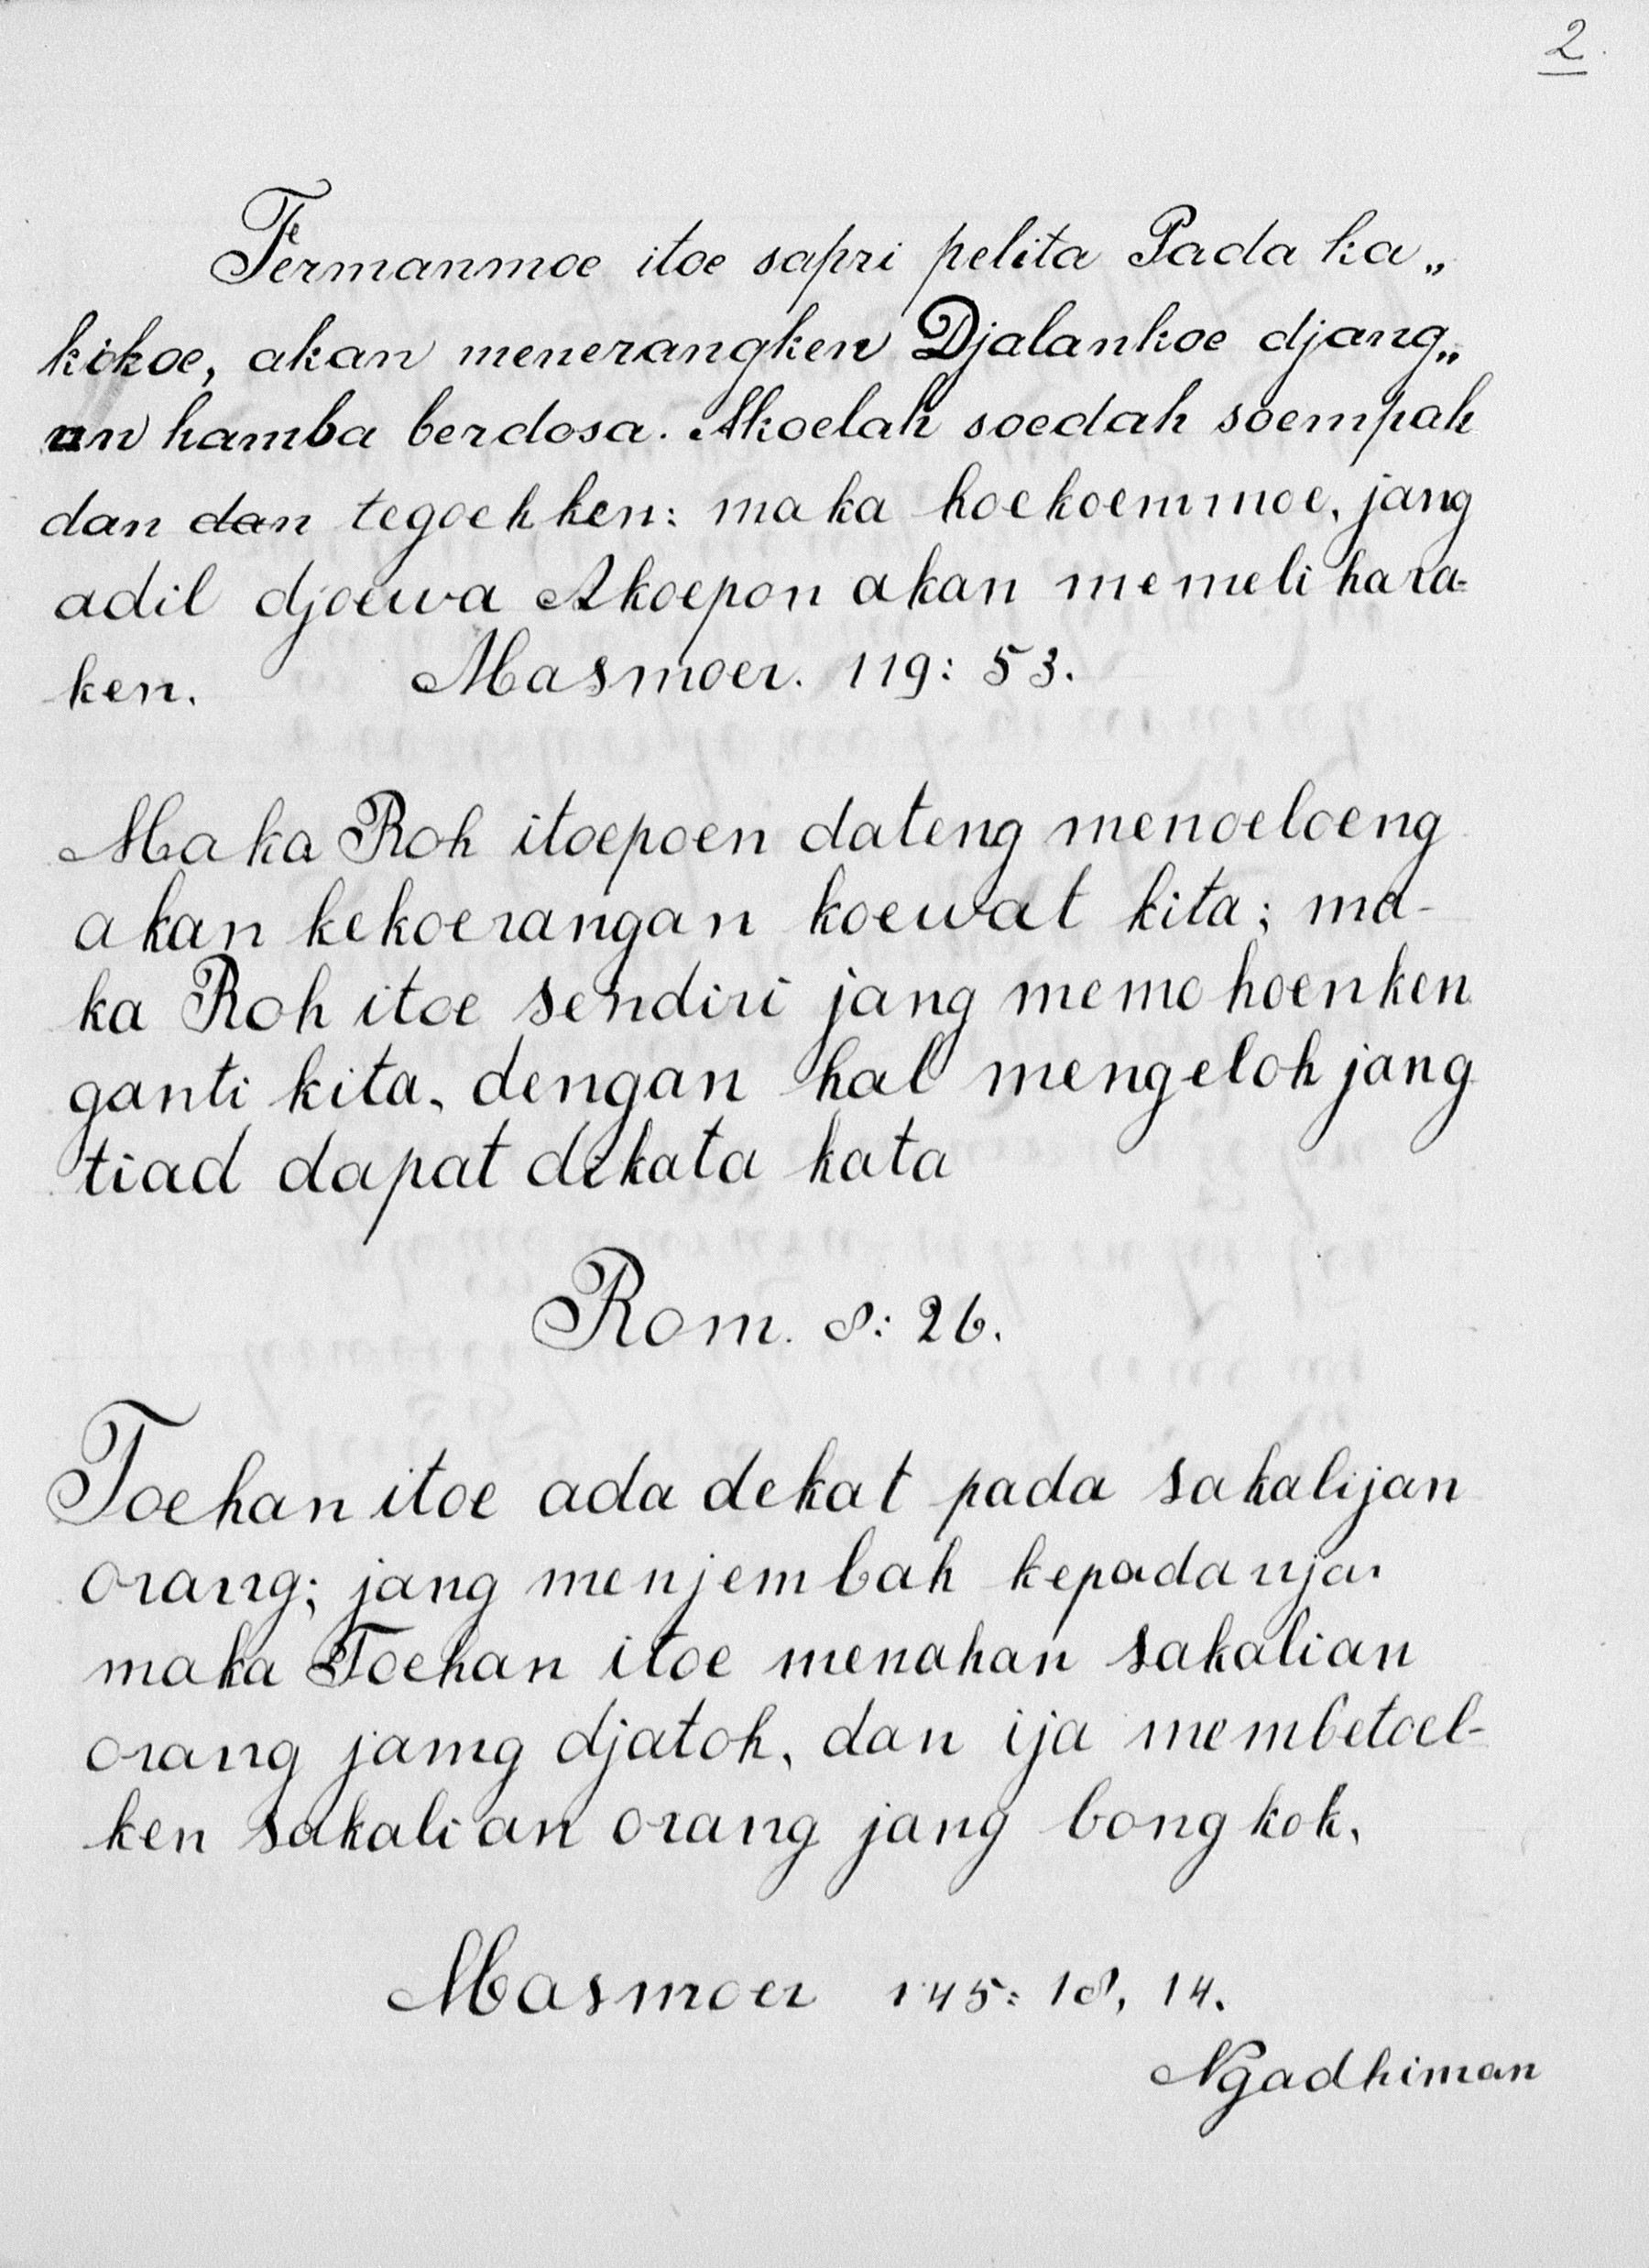 2.
Fermanmoe itoe sapri pelita Pada ka„
kikoe, akan menerangken Djalankoe djang„
an hamba berdosa. Akoelah soedah soempah
dan dan tegoehken: maka hoekoemmoe, jang
adil djoewa Akoepon akan memelihara=
ken. Masmoer. 119: 53.
Maka Roh itoepoen dateng menoeloeng
akan kekoerangan koewat kita; ma-
ka Roh itoe sendiri jang memohoenken
ganti kita, dengan hal mengeloh jang
tiad dapat dikata kata
Rom. 8: 26.
Toehan itoe ada dekat pada sakalijan
orang; jang menjembah kepadanja.
maka Toehan itoe menahan sakalian
orang jamg djatoh, dan ija membetoel-
ken sakalian orang jang bongkok,
Masmoer 145: 18, 14.
Ngadhiman